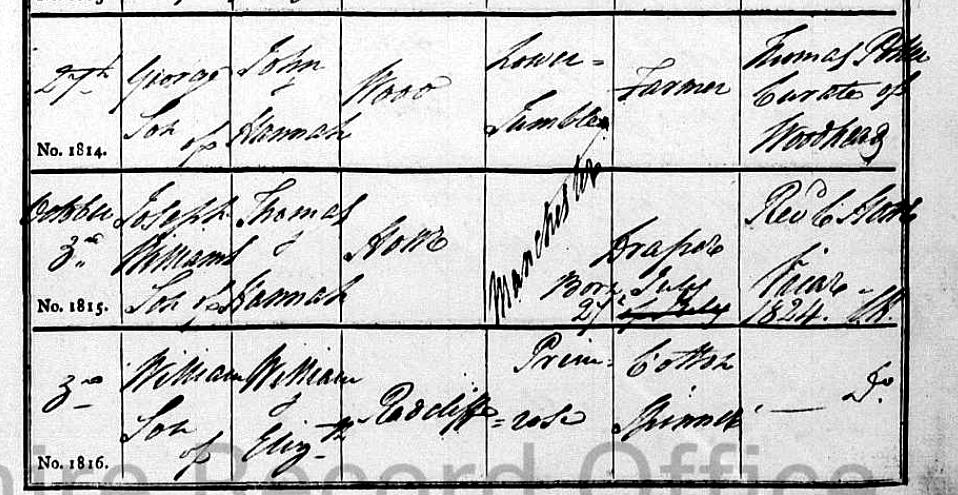 27th George John Wood Lower= Farmer Thomas
Son of & Hannah Curate of
No. 1814. Woodhead
October Joseph Thomas Howe Manchester Draper Revd C Howe
3rd William & Born July Vicar
No. 1815. Son of Hannah 27 of July 1824.
3rd William William Radcliffe Prim= Cotton Do
Son of & Elizth =rose Spinner
No. 1816.
Record Office